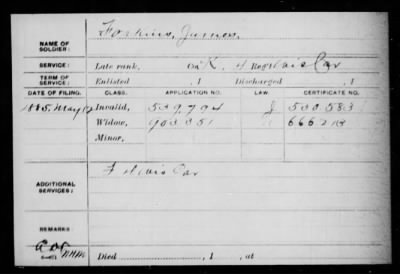 NAME OF SOLDIER: Forkins, James.
SERVICE: Late rank, Co. K, 4 Reg't Wis Cav
TERM OF SERVICE: Enlisted , 1 Discharged , 1
DATE OF FILING. CLASS. APPLICATION NO. LAW. CERTIFICATE NO.
1885, May Invalid, 539,704 J 530583
Widow, 903351
Minor,
ADDITIONAL SERVICES: F Wis Cav
REMARKS:
Died , 1 , at